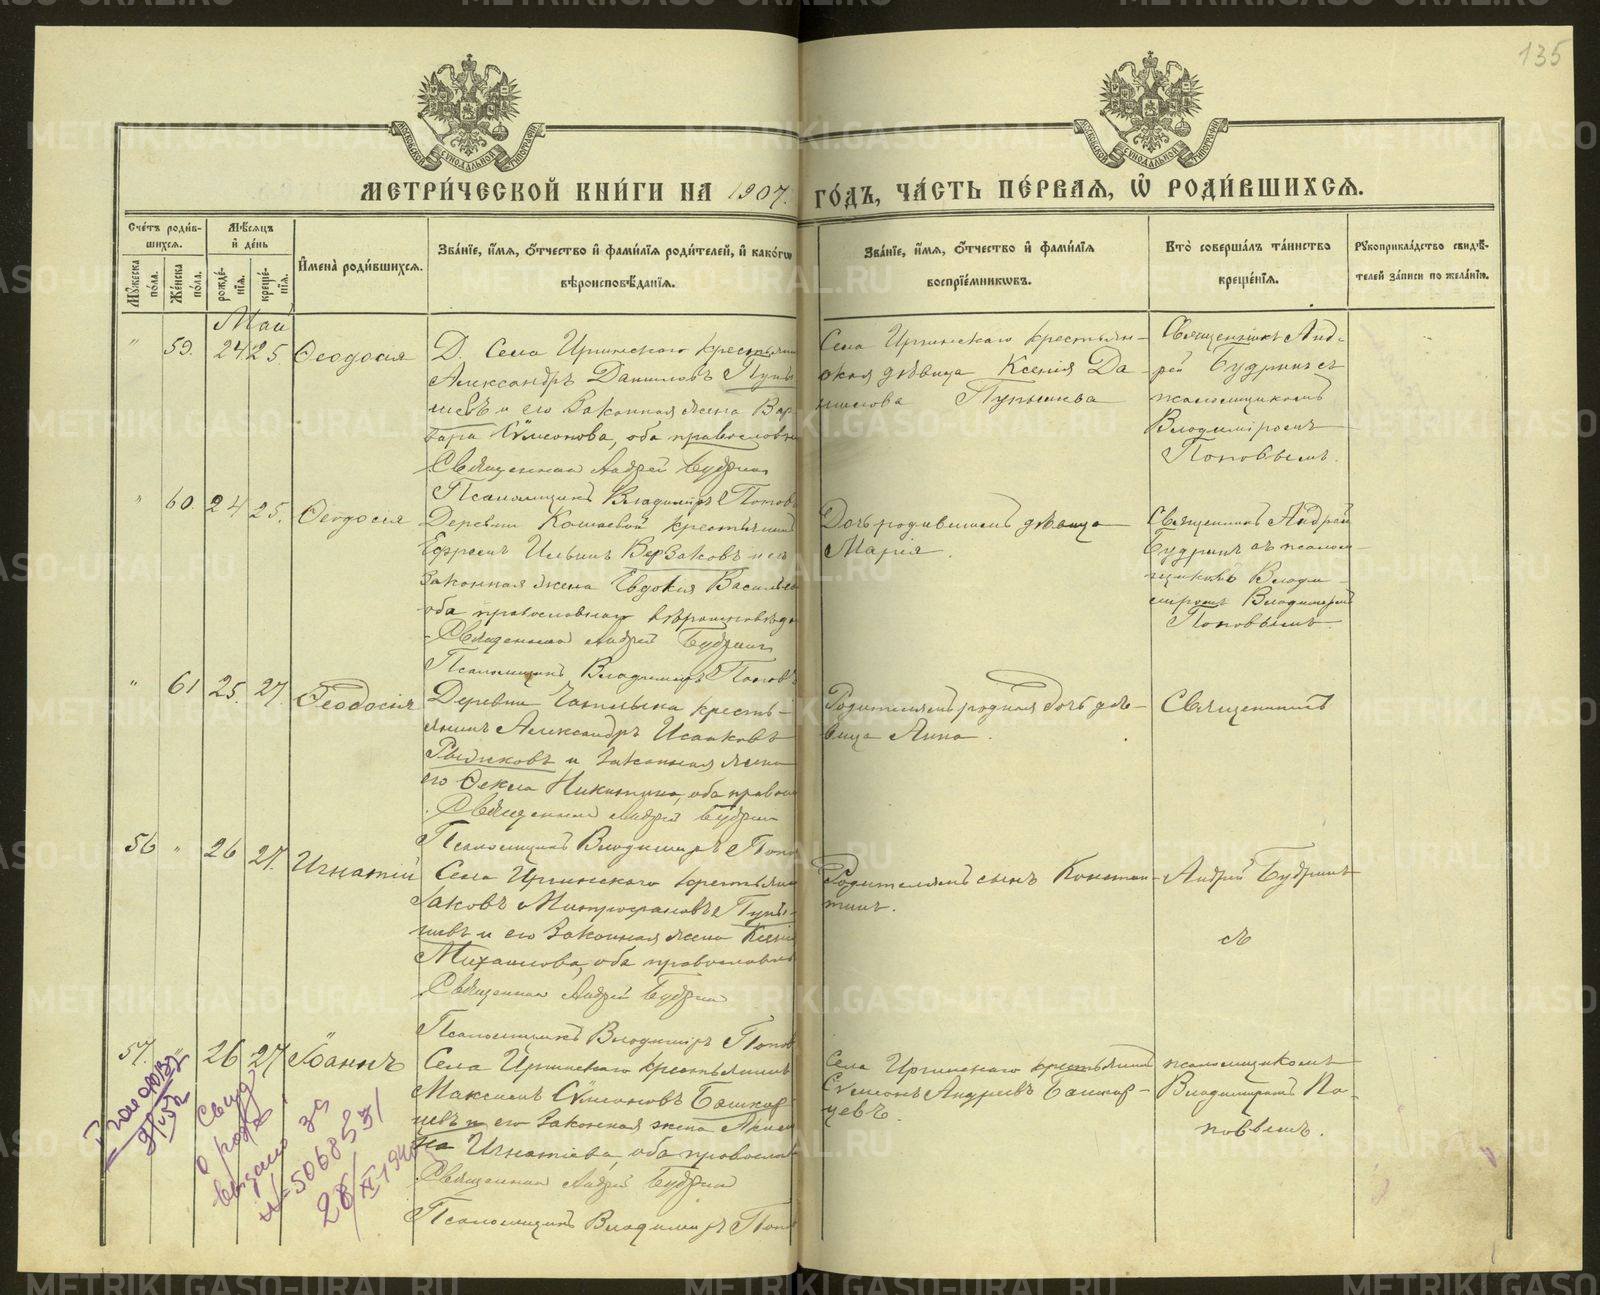 135
МЕТРИ́ЧЕСКОЙ КНИ́ГИ НА 1907. ГО́ДЪ, ЧА́СТЬ ПЕ́РВАЯ, Ѡ РОДИ́ВШИХСЯ.
Сче́тъ роди́вшихся.
Мꙋ́жеска по́ла.
Же́нска по́ла.
Мѣ́сяцъ и де́нь
рожде́нїя.
креще́нїя.
И҆мена̀ роди́вшихся.
Зва́нїе, и҆́мя, ѻ҆́тчество и҆ фами́лїя роди́телей, и҆ како́гѡ
вѣроисповѣ́данїя.
Зва́нїе, и҆́мя, ѻ҆́тчество и҆ фами́лїя
воспрїе́мникѡвъ.
Кто̀ соверша́лъ та́инство
креще́нїя.
Рꙋкоприкла́дство свидѣ́-
телей за́писи по жела́нїю.
Май
" 59. 24. 25. Ѳеодосія
Д. Села Иргинскаго крестьянин
Александръ Даниловъ Пупы
шевъ и его законная жена Вар
вара Сѵмеонова, оба православн
Священник Андрей Будрин
Псаломщикъ Владиміръ Поповъ
Села Иргинскаго крестьян-
ская дѣвица Ксенія Да-
нилова Пупышева
Священникъ Анд-
рей Будринъ съ
псаломщикомъ
Владиміромъ
Поповымъ.
" 60. 24 25. Ѳеодосия
Деревни Кошаевой крестьянинъ
Ефремъ Ильинъ Верзаковъ и его
законная жена Евдокия Василье
оба православнаго вѣроисповѣда
Священник Андрей Будрин
Псаломщикъ Владимиръ Поповъ
Дочь родившимъ дѣвица
Марія.
Священникъ Андрей
Будринъ съ псалом-
щикомъ Влади-
миромъ Владимиров
Поповымъ.
" 61 25. 27. Ѳеодосія
Деревни крестья-
янинъ Александръ Исааковъ
Рыжковъ и законная жена
его Ѳекла Никитина, оба правосл
Священник Андрей Будрин
Псаломщикъ Владимиръ Попо
Родителямъ родная дочь дѣ-
вица Анна.
Священникъ
56 " 26 27. Игнатій
Села Иргинскаго крестьянин
Іаковъ Митрофановъ Пупы-
шевъ и его законная жена Ксені
Михаилова, оба православн
Священник Андрей Будрин
Псаломщикъ Владиміръ Попов
Родителямъ сынъ Констан-
тинъ.
Андрей Будринъ
съ
57. " 26 27 Іоаннъ
Села Иргинскаго крестьянинъ
Максимъ Сѵмеоновъ Башкир
цевъ и его законная жена
на Игнатіева, оба православ
Священник Андрей Будрин
Псаломщикъ Владимиръ Попо
Села Иргинскаго крестьянинъ
Сѵмеонъ Андреевъ Башкир-
цевъ.
псаломщикомъ
Владиміромъ По-
повымъ.
Свид.
о рожд.
выдано за
№ 5068531
28/XI-1940